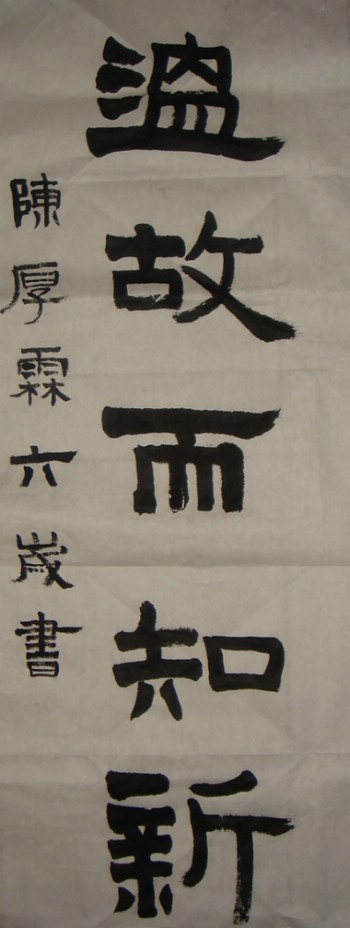 溫故而知新
陳厚霖六歲書